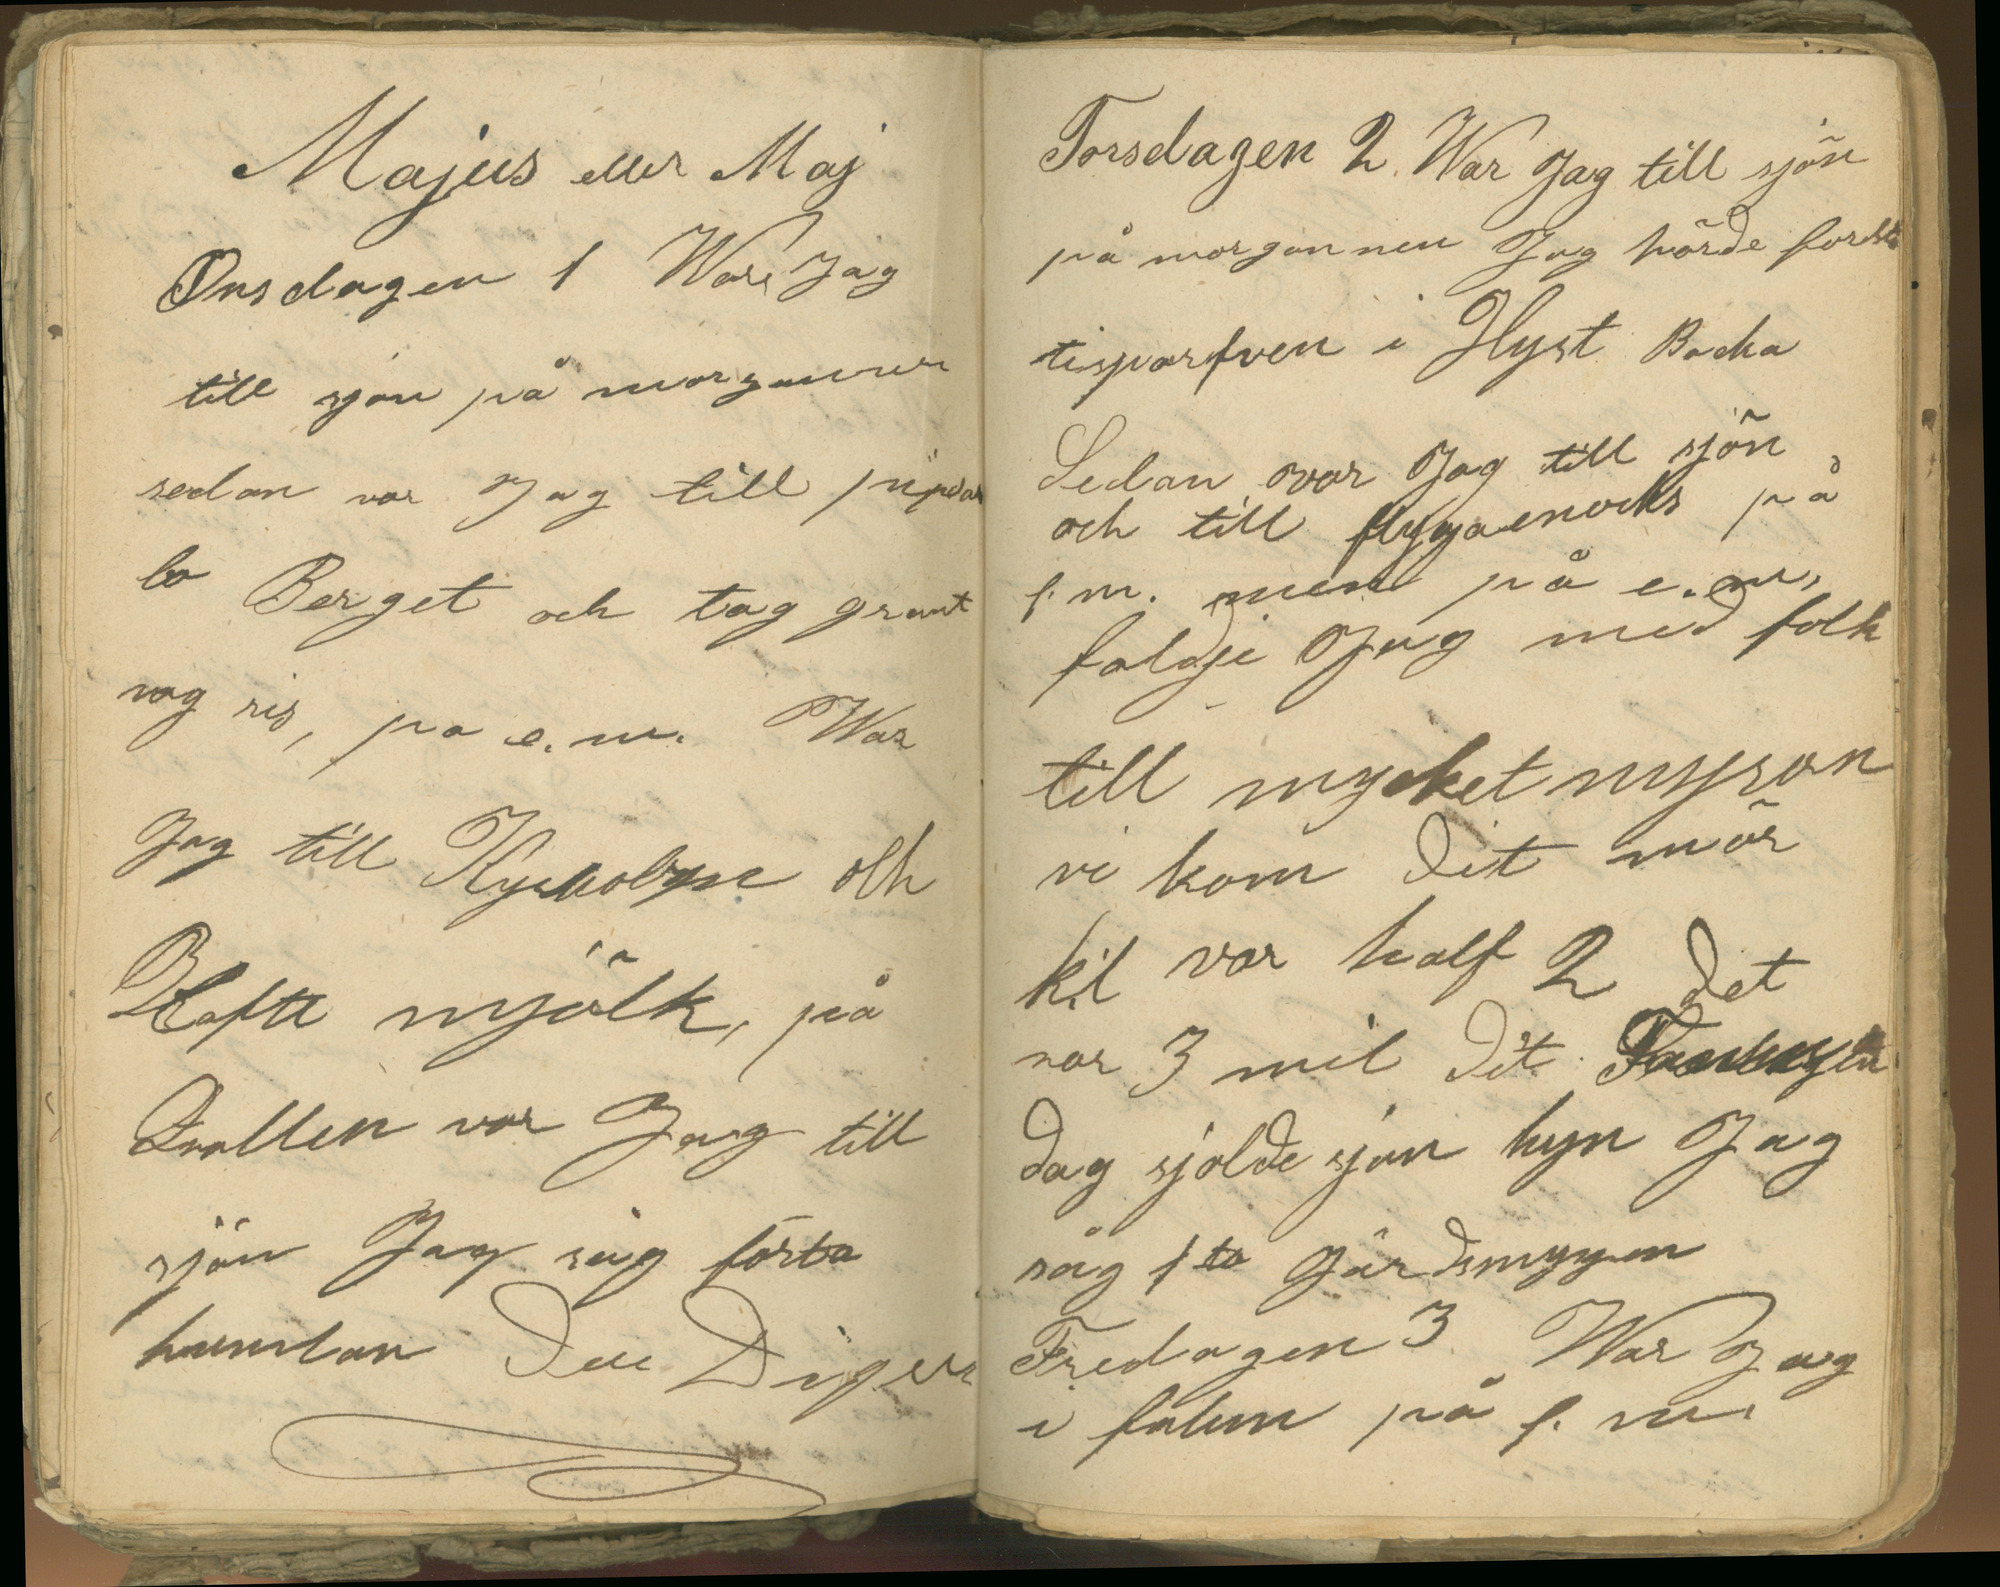 Majus eller Maj
Onsdagen 1 War Jag
till sjön på morgonnen
sedan var Jag till
bo Berget och tog grant
nog ris, pa e. m. War
Jag till och
Hafte mjölk, på
Qvällen var Jag till
sjön Jag såg första
humlan Den
Torsdagen 2. War Jag till sjön
på morgonnen Jag hörde forsta
tisparfven i Hyst Backa
Sedan var Jag till sjön
och till flygaenocks på
f. m. men på e. m.
foldje Jag med folk
till mycketmyran
vi kom dit mör
kl var half 2 det
var 3 mil dit.
dag sjolde sjön hyn Jag
såg 1sta Järdsmygen
Fredagen 3 War Jag
i falun på f. m.